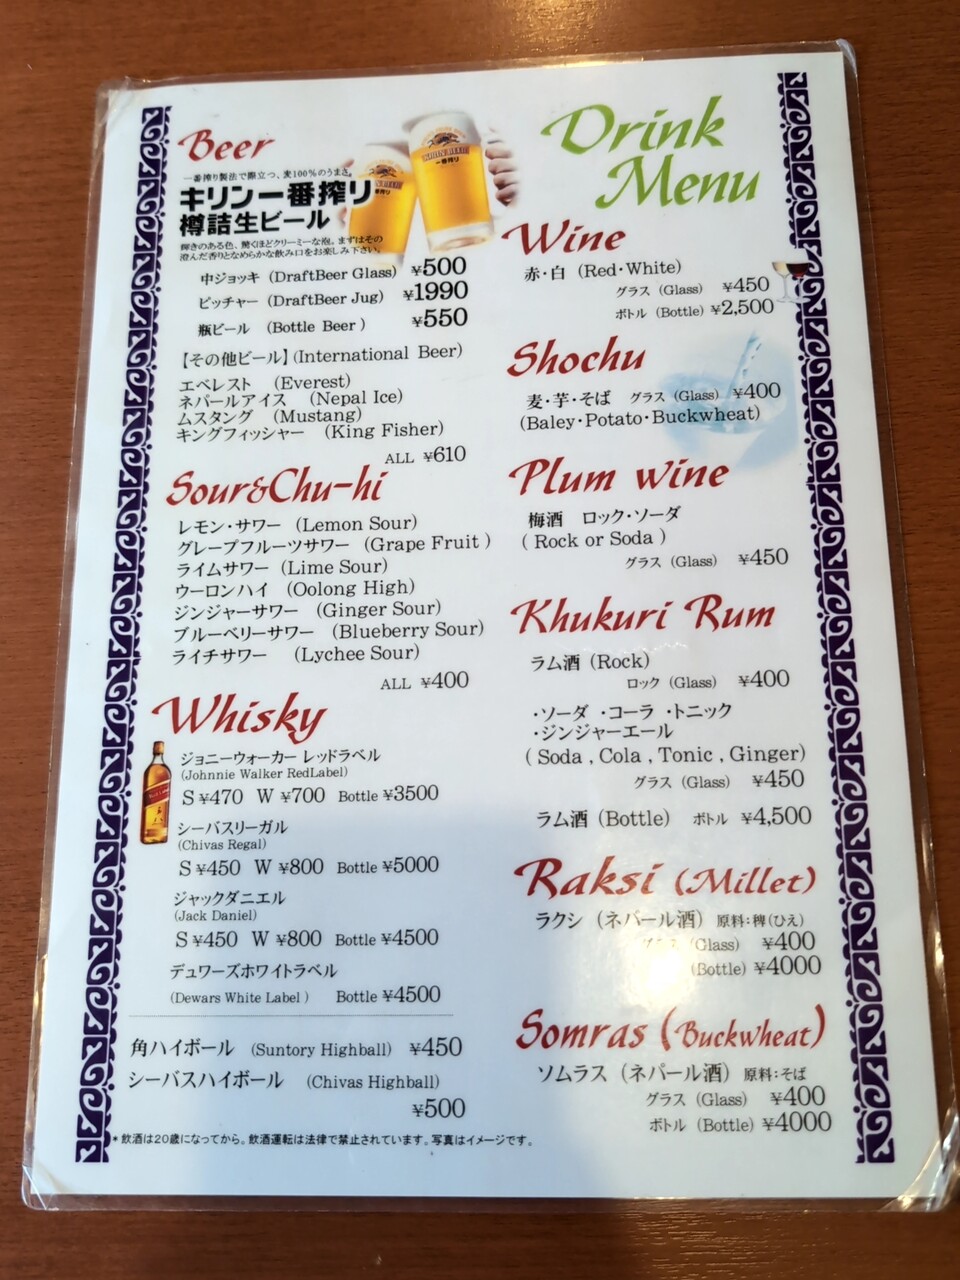 Drink
Menu
Beer
一番搾り製法で際立つ、麦100%のうまさ。
キリン一番搾り
樽詰生ビール
輝きのある色、驚くほどクリーミーな泡。まずはその
澄んだ香りとなめらかな飲み口をお楽しみ下さい。
中ジョッキ (DraftBeer Glass) ¥500
ピッチャー (DraftBeer Jug) ¥1990
瓶ビール (Bottle Beer ) ¥550
【その他ビール】(International Beer)
エベレスト (Everest)
ネパールアイス (Nepal Ice)
ムスタング (Mustang)
キングフィッシャー (King Fisher)
ALL ¥610
Sour&Chu-hi
レモン・サワー (Lemon Sour)
グレープフルーツサワー (Grape Fruit )
ライムサワー (Lime Sour)
ウーロンハイ (Oolong High)
ジンジャーサワー (Ginger Sour)
ブルーベリーサワー (Blueberry Sour)
ライチサワー (Lychee Sour)
ALL ¥400
Whisky
ジョニーウォーカー レッドラベル
(Johnnie Walker RedLabel)
S ¥470 W ¥700 Bottle ¥3500
シーバスリーガル
(Chivas Regal)
S ¥450 W ¥800 Bottle ¥5000
ジャックダニエル
(Jack Daniel)
S ¥450 W ¥800 Bottle ¥4500
デュワーズホワイトラベル
(Dewars White Label ) Bottle ¥4500
角ハイボール (Suntory Highball) ¥450
シーバスハイボール (Chivas Highball)
¥500
Wine
赤・白 (Red・White)
グラス (Glass) ¥450
ボトル (Bottle) ¥2,500
Shochu
麦・芋・そば グラス (Glass) ¥400
(Baley・Potato・Buckwheat)
Plum wine
梅酒 ロック・ソーダ
( Rock or Soda )
グラス (Glass) ¥450
Khukuri Rum
ラム酒 (Rock)
ロック (Glass) ¥400
・ソーダ ・コーラ ・トニック
・ジンジャーエール
( Soda , Cola , Tonic , Ginger)
グラス (Glass) ¥450
ラム酒 (Bottle) ボトル ¥4,500
Raksi (Millet)
ラクシ (ネパール酒) 原料:稗(ひえ)
グラス (Glass) ¥400
(Bottle) ¥4000
Somras (Buckwheat)
ソムラス (ネパール酒) 原料:そば
グラス (Glass) ¥400
ボトル (Bottle) ¥4000
*飲酒は20歳になってから。飲酒運転は法律で禁止されています。写真はイメージです。